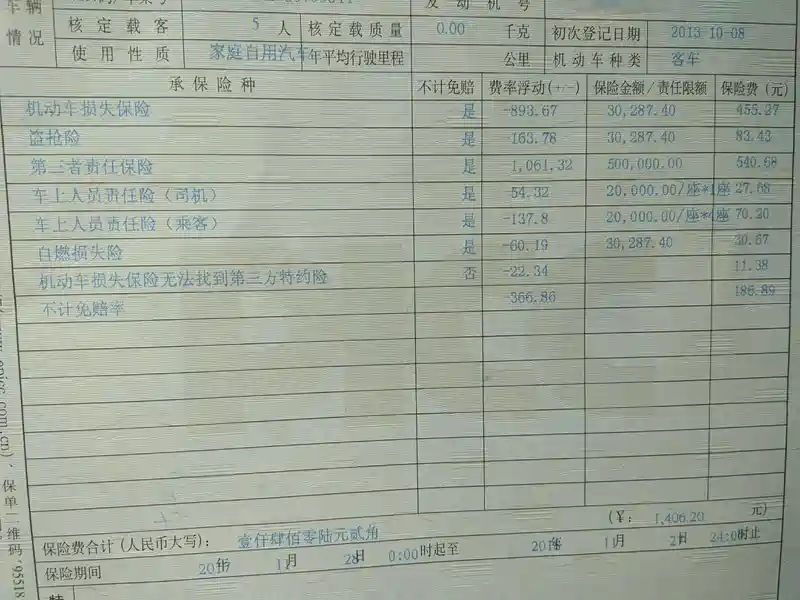 车辆
情况
发动机号
核定载客 5 人 核定载质量 0.00 千克 初次登记日期 2013-10-08
使用性质 家庭自用汽车 年平均行驶里程 公里 机动车种类 客车
承保险种 不计免赔 费率浮动(+/-) 保险金额/责任限额 保险费(元)
机动车损失保险 是 -893.67 30,287.40 455.27
盗抢险 是 -163.78 30,287.40 83.43
第三者责任保险 是 -1,061.32 500,000.00 540.68
车上人员责任险(司机) 是 -54.32 20,000.00/座*1座 27.68
车上人员责任险(乘客) 是 -137.8 20,000.00/座*4座 70.20
自燃损失险 是 -60.19 30,287.40 30.67
机动车损失保险无法找到第三方特约险 否 -22.34 11.38
不计免赔率 -366.86 186.89
保险费合计(人民币大写): 壹仟肆佰零陆元贰角 (¥: 1,406.20 元)
保险期间 年 月 28日 0:00时起至 年 月 日 24:00时止
保单二维码
95518